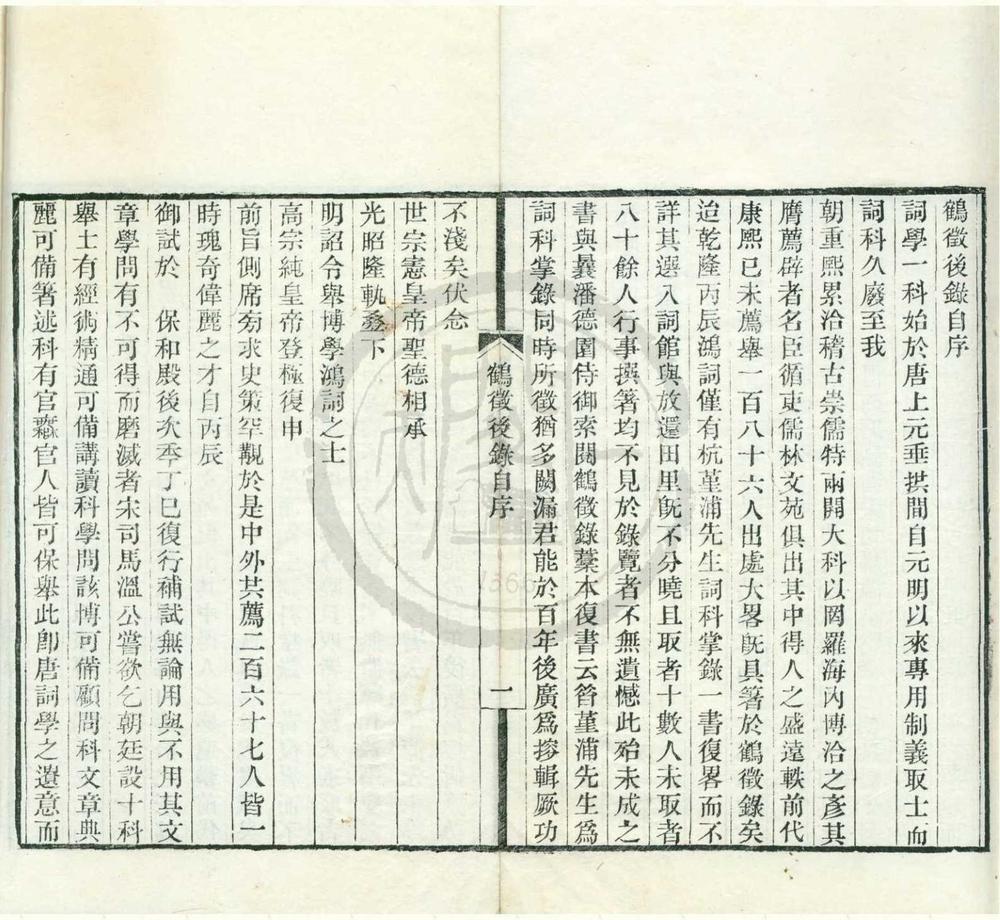 鶴徵後錄自序
詞學一科始於唐上元垂拱間自元明以來專用制義取士而
詞科久廢至我
朝重熙累洽稽古崇儒特兩開大科以罔羅海內博洽之彥其
膺薦辟者名臣循吏儒林文苑俱出其中得人之盛遠軼前代
康熙己未薦舉一百八十六人出處大畧旣具箸於鶴徵錄矣
迨乾隆丙辰鴻詞僅有杭堇浦先生詞科掌錄一書復畧而不
詳其選入詞館與放還田里旣不分曉且取者十數人未取者
八十餘人行事撰箸均不見於錄覽者不無遺憾此殆未成之
書與曩潘德園侍御索閱鶴徵錄藁本復書云昝堇浦先生爲
詞科掌錄同時所徵猶多闕漏君能於百年後廣爲搜輯厥功
鶴徵後錄自序
一
不淺矣伏念
世宗憲皇帝聖德相承
光昭隆軌發下
明詔令舉博學鴻詞之士
高宗純皇帝登極復申
前旨側席旁求史策罕覯於是中外共薦二百六十七人皆一
時瑰奇偉麗之才自丙辰
御試於 保和殿後次秊丁巳復行補試無論用與不用其文
章學問有不可得而磨滅者宋司馬溫公嘗欲乞朝廷設十科
舉士有經術精通可備講讀科學問該博可備顧問科文章典
麗可備箸述科有官無官人皆可保舉此卽唐詞學之遺意而